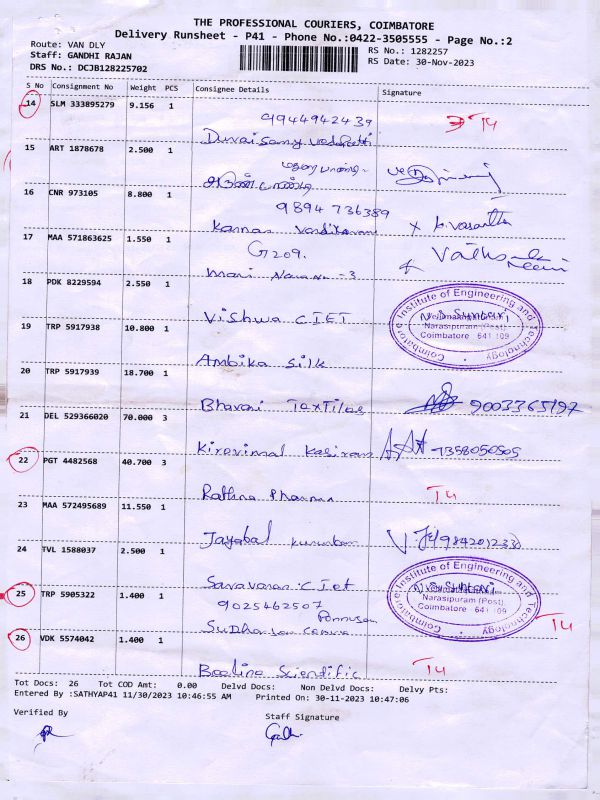 THE PROFESSIONAL COURIERS, COIMBATORE
Delivery Runsheet - P41 - Phone No.:0422-3505555 - Page No.:2
Route: VAN DLY
RS No.: 1282257
Staff: GANDHI RAJAN
RS Date: 30-Nov-2023
DRS No.: DCJB128225702
S No Consignment No Weight PCS Consignee Details Signature
14 SLM 333895279 9.156 1
9944942439
T4
Duraisamy
15 ART 1878678 2.500 1
16 CNR 973105 8.800 1
9894 736389
Kannan
17 MAA 571863625 1.550 1
G 209.
18 PDK 8229594 2.550 1
Vishwa CIET
Coimbatore Institute of Engineering and Technology
Narasipuram (Post)
Coimbatore 641 109
19 TRP 5917938 10.800 1
Ambika Silk
20 TRP 5917939 18.700 1
Bhavani Textiles 9003365197
21 DEL 529366020 70.000 3
7358050505
22 PGT 4482568 40.700 3
Rathna Pharma T4
23 MAA 572495689 11.550 1
Jayabal
24 TVL 1588037 2.500 1
Saravanan CIET
Coimbatore Institute of Engineering and Technology
Narasipuram (Post)
Coimbatore 641 109
25 TRP 5905322 1.400 1
9025462507
Ponnusamy
T4
26 VDK 5574042 1.400 1
Beeline Scientific T4
Tot Docs: 26 Tot COD Amt: 0.00 Delvd Docs: Non Delvd Docs: Delvy Pts:
Entered By :SATHYAP41 11/30/2023 10:46:55 AM Printed On: 30-11-2023 10:47:06
Verified By
Staff Signature